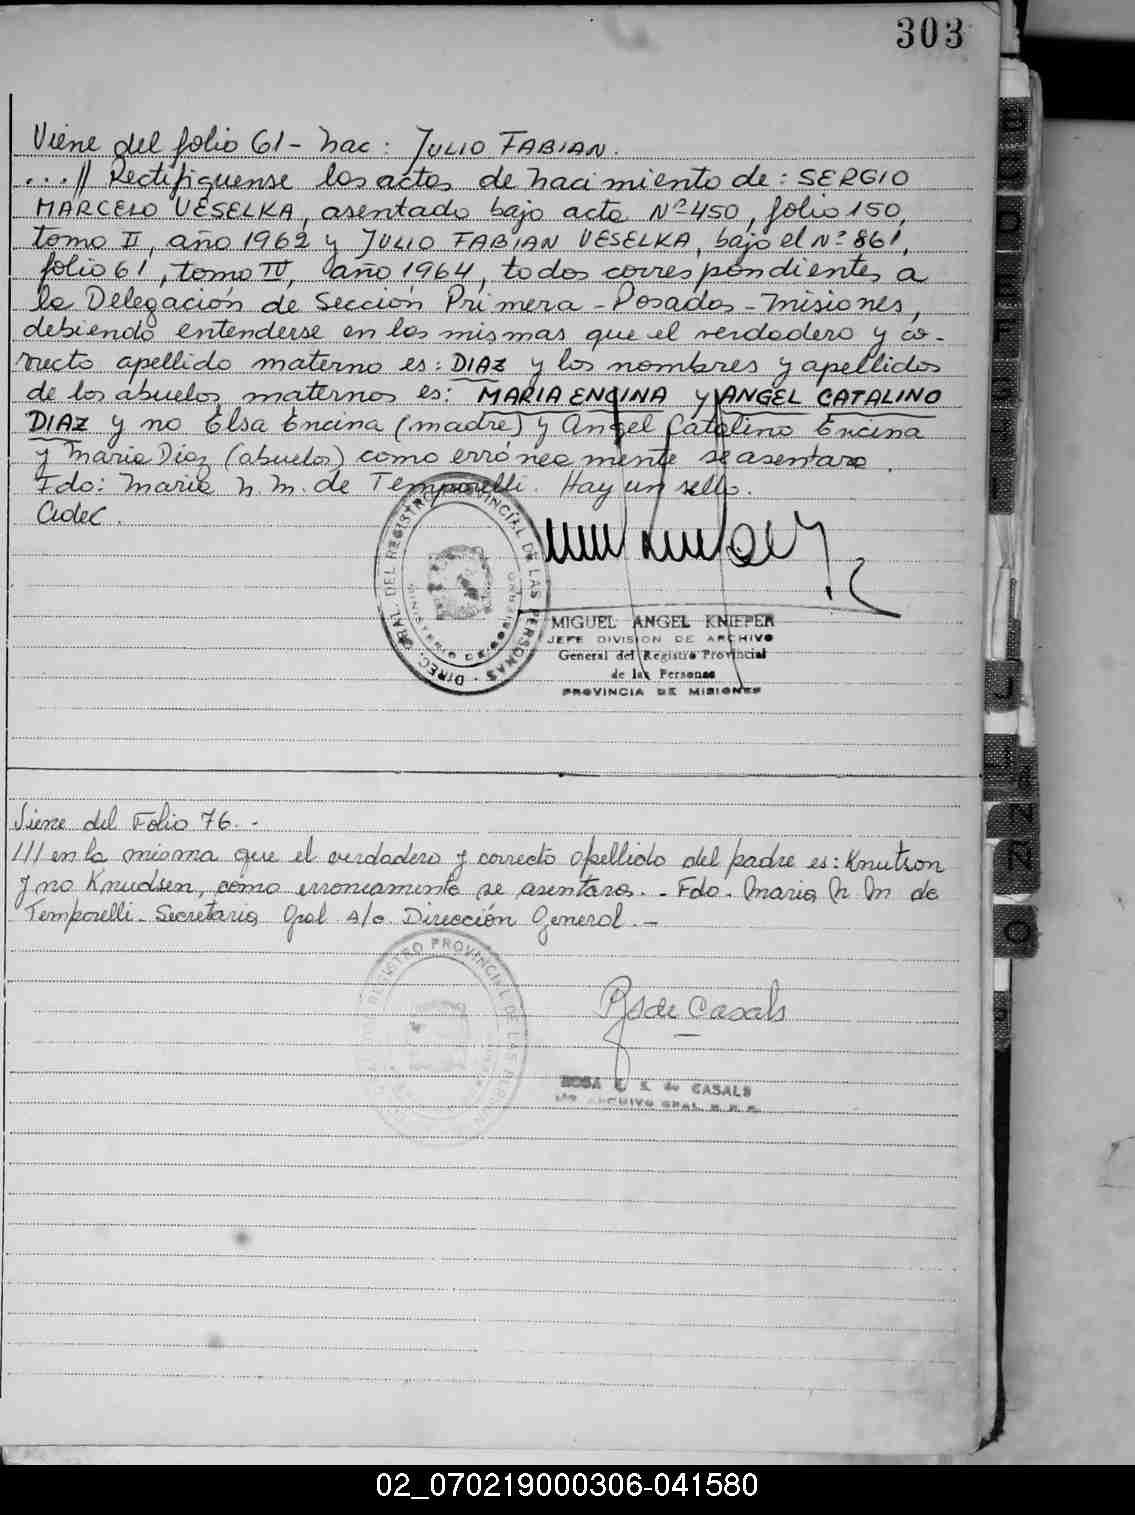 303
Viene del folio 61 - Nac: JULIO FABIAN.
...// Rectifiquense las actas de nacimiento de: SERGIO
MARCELO VESELKA, asentado bajo acta Nº 450, folio 150,
tomo II, año 1962 y JULIO FABIAN VESELKA, bajo el Nº 861,
folio 61, tomo IV, año 1964, todos correspondientes a
la Delegación de Sección Primera - Posadas - Misiones,
debiendo entenderse en las mismas que el verdadero y co-
rrecto apellido materno es: DIAZ y los nombres y apellidos
de los abuelos maternos es: MARIA ENCINA y ANGEL CATALINO
DIAZ y no Elsa Encina (madre) y Angel Catalino Encina
y Maria Diaz (abuelos) como erróneamente se asentara.
Fdo: Maria N. M. de Temporelli. Hay un sello.
DIREC. GRAL. DEL REGISTRO PROVINCIAL DE LAS PERSONAS
MINISTERIO DE GOBIERNO
MIGUEL ANGEL KNIEPER
JEFE DIVISION DE ARCHIVO
General del Registro Provincial
de las Personas
PROVINCIA DE MISIONES
Viene del Folio 76.-
/// en la misma que el verdadero y correcto apellido del padre es: Knutson
y no Knudsen, como erroneamente se asentara.- Fdo. Maria N. M de
Temporelli - Secretaria Gral A/c. Dirección General.-
REGISTRO PROVINCIAL DE LAS PERSON
R S de Casals
ROSA S. de CASALS
ARCHIVO GRAL. R. P. P.
B
D
E
F
G
I
J
N
Ñ
O
02_070219000306-041580